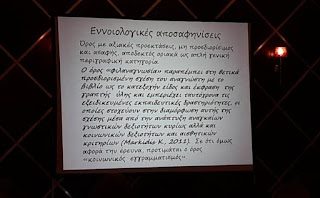 Εννοιολογικές αποσαφηνίσεις
Όρος με αξιακές προεκτάσεις, μη προσδιορίσιμος
και σαφής, αποδεκτός οριακά ως απλή γενική
περιγραφική κατηγορία
Ο όρος «φιλαναγνωσία» παραπέμπει στη θετικά
προσδιορισμένη σχέση του αναγνώστη με το
βιβλίο ως το κατεξοχήν είδος και έκφραση της
γραπτής ύλης και εμπεριέχει ταυτόχρονα τις
εξειδικευμένες εκπαιδευτικές δραστηριότητες, οι
οποίες στοχεύουν στην διαμόρφωση αυτής της
σχέσης μέσα από την ανάπτυξη αναγκαίων
γνωστικών δεξιοτήτων κυρίως αλλά και
κοινωνικών δεξιοτήτων και αισθητικών
κριτηρίων (Markidis K., 2011). Σε ότι όμως
αφορά την έρευνα, προτιμάται ο όρος
«κοινωνικός εγγραμματισμός»